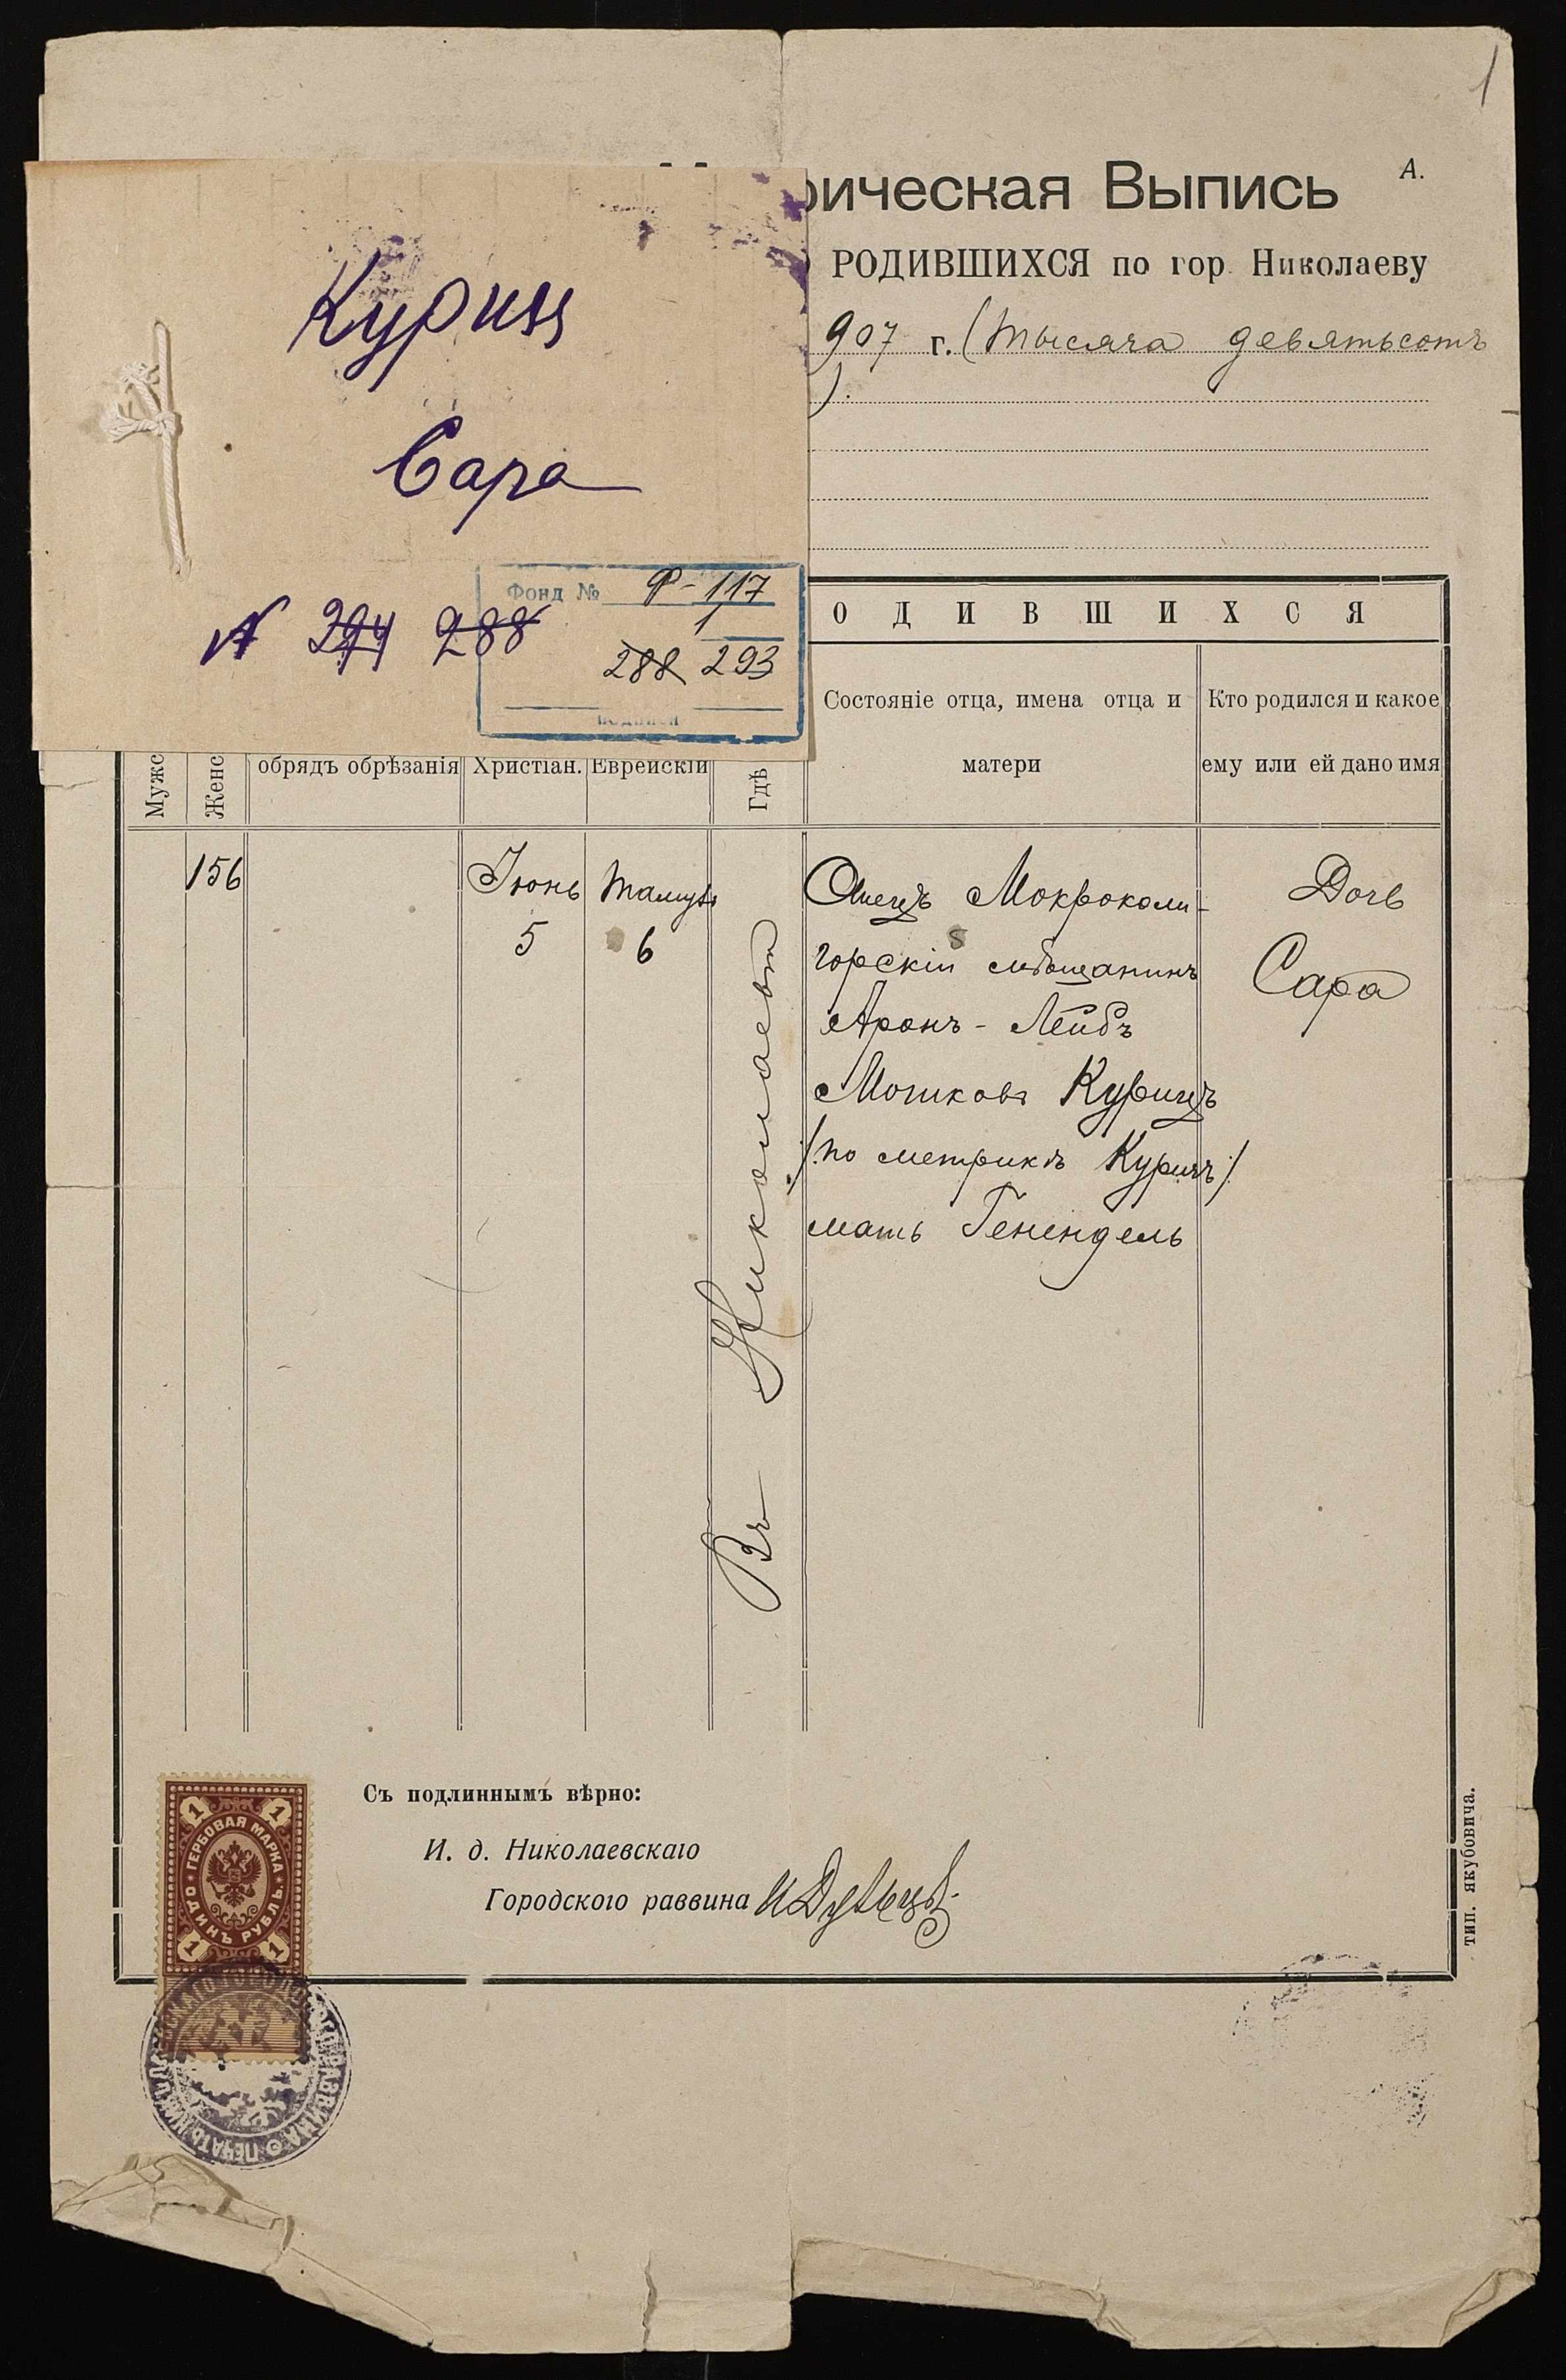 1
А.
рическая Выпись
РОДИВШИХСЯ по гор. Николаеву
907 г. (тысяча девятьсотъ
).
Куриц
Сара
N 294 288
Фонд № Р-117
1
288 293
ОДИВШИХСЯ
Мужс
Женс
обрядъ обрѣзанія
Христіан.
Еврейскій
Гдѣ
Состояніе отца, имена отца и
матери
Кто родился и какое
ему или ей дано имя
156
Іюнь
5
Тамузъ
6
Въ Николаевѣ
Отецъ Мокрокали-
горскій мѣщанинъ
Аронъ-Лейбъ
Мошковъ Курицъ
/:по метрикѣ Куричъ:/
мать Генендель
Дочь
Сара
Съ подлиннымъ вѣрно:
И. д. Николаевскаго
Городского раввина
ГЕРБОВАЯ МАРКА
ОДИНЪ РУБЛЬ
1 1
1 1
тип. якубовича.